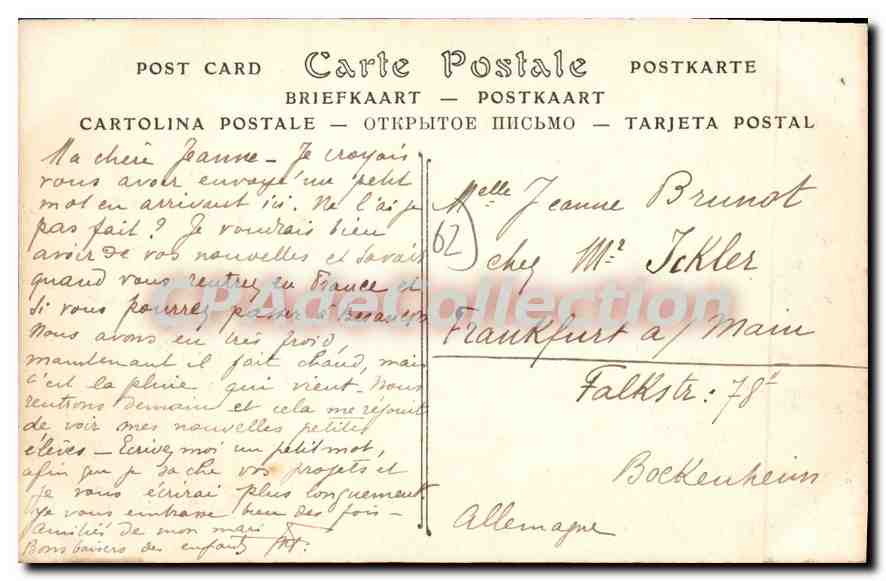 POST CARD Carte Postale POSTKARTE
BRIEFKAART — POSTKAART
CARTOLINA POSTALE — ОТКРЫТОЕ ПИСЬМО — TARJETA POSTAL
Ma chère Jeanne — Je croyais
vous avoir envoyé un petit
mot en arrivant ici. Ne l'ai je
pas fait ? Je voudrais bien
avoir de vos nouvelles et savoir
quand vous rentrez en France et
si vous pourrez passer à Besançon
Nous avons eu très froid,
maintenant il fait chaud, mais
c'est la pluie qui vient — Nous
rentrons demain et cela me réjouit
de voir mes nouvelles petites
élèves — Ecrivez moi un petit mot,
afin que je sache vos projets et
je vous écrirai plus longuement
Je vous embrasse bien des fois —
amitiés de mon mari
Bons baisers des enfants
Melle Jeanne Brunot
62
chez Mr Ickler
Frankfurt a/ Main
Falkstr : 78
Bockenheim
Allemagne
CPAdeCollection